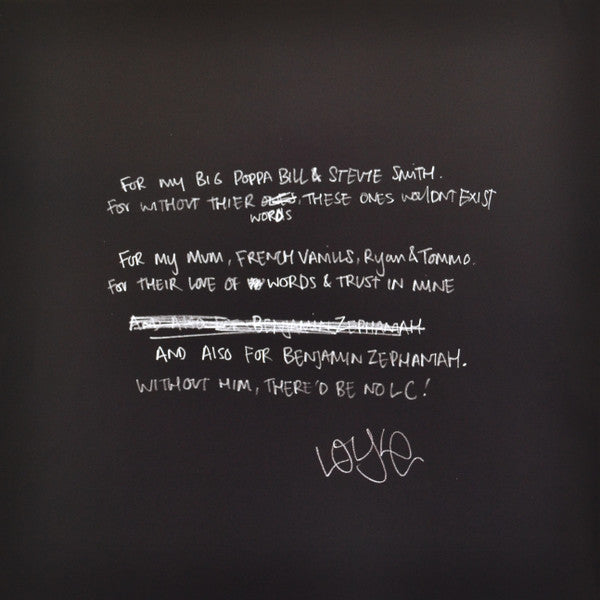 FOR MY BIG POPPA BILL & STEVIE SMITH.
FOR WITHOUT THIER WORDS, THESE ONES WOULDNT EXIST
FOR MY MUM, FRENCH VANILLS, RYAN & TOMMO.
FOR THEIR LOVE OF WORDS & TRUST IN MINE
AND ALSO FOR BENJAMIN ZEPHANIAH
AND ALSO FOR BENJAMIN ZEPHANIAH.
WITHOUT HIM, THERE'D BE NO LC!
Loyle